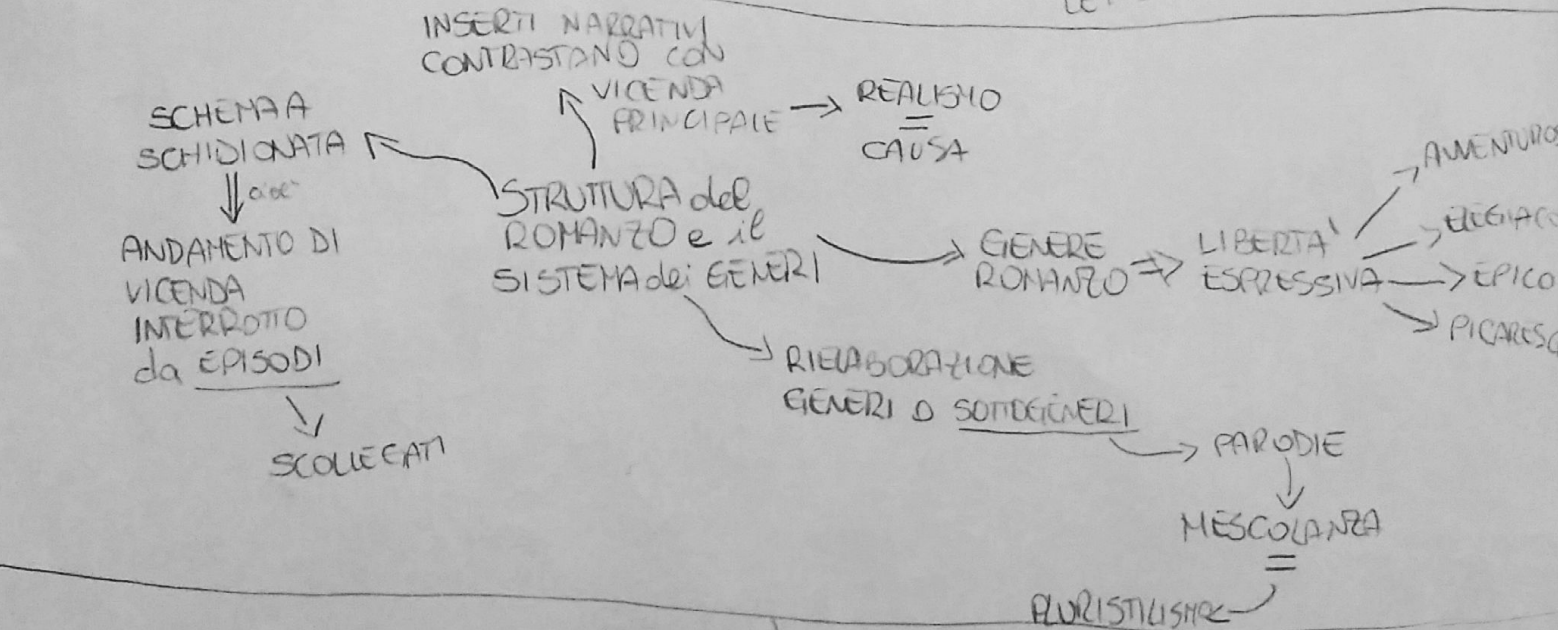 INSERTI NARRATIVI
CONTRASTANO CON
VICENDA
PRINCIPALE → REALISMO
=
CAUSA
SCHEMA A
SCHIDIONATA
⇓ cioè
ANDAMENTO DI
VICENDA
INTERROTTO
da EPISODI
SCOLLEGATI
STRUTTURA del
ROMANZO e il
SISTEMA dei GENERI
GENERE
ROMANZO ⇒
LIBERTA'
ESPRESSIVA
AVVENTUROS
ELEGIACO
EPICO
PICARESC
RIELABORAZIONE
GENERI O SOTTOGENERI
PARODIE
MESCOLANZA
=